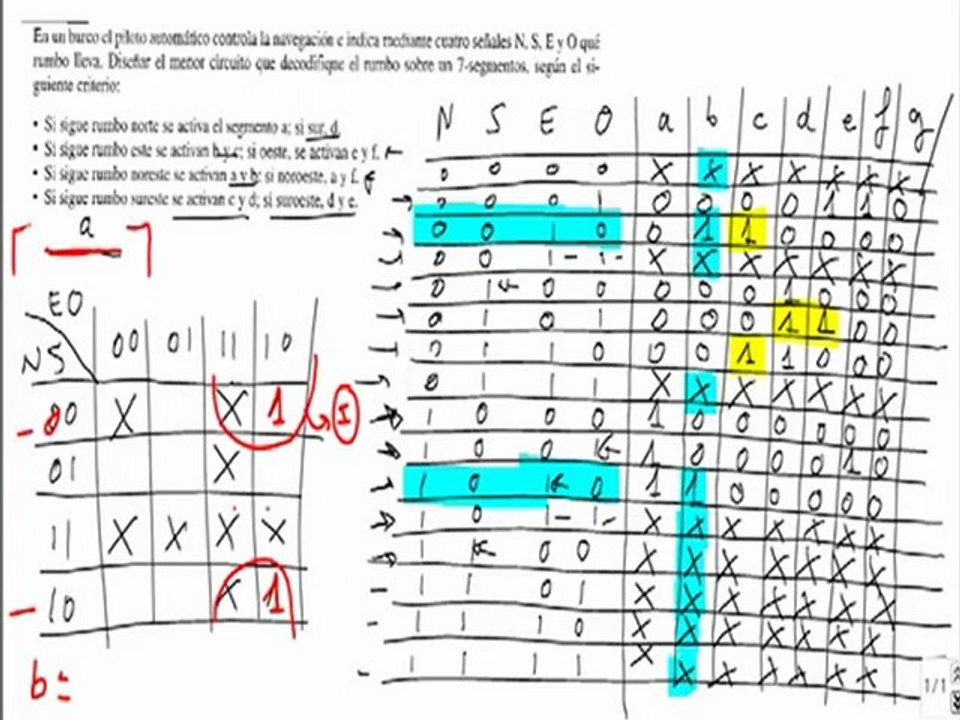 En un barco el piloto automático controla la navegación e indica mediante cuatro señales N, S, E y O qué
rumbo lleva. Diseñar el menor circuito que decodifique el rumbo sobre un 7-segmentos, según el si-
guiente criterio:
• Si sigue rumbo norte se activa el segmento a; si sur, d
• Si sigue rumbo este se activan b y c; si oeste, se activan e y f.
• Si sigue rumbo noreste se activan a y b; si noroeste, a y f.
• Si sigue rumbo sureste se activan c y d; si suroeste, d y e.
a
N S E O a b c d e f g
0 0 0 0 X X X X X X X
0 0 0 1 0 0 0 0 1 1 0
0 0 1 0 0 1 1 0 0 0 0
0 0 1 1 X X X X X X X
0 1 0 0 0 0 0 1 0 0 0
0 1 0 1 0 0 0 1 1 0 0
0 1 1 0 0 0 1 1 0 0 0
0 1 1 1 X X X X X X X
1 0 0 0 1 0 0 0 0 0 0
1 0 0 1 1 0 0 0 0 1 0
1 0 1 0 1 1 0 0 0 0 0
1 0 1 1 X X X X X X X
1 1 0 0 X X X X X X X
1 1 0 1 X X X X X X X
1 1 1 0 X X X X X X
1 1 1 1 X X X X X X
EO
NS 00 01 11 10
00 X X 1 I
01 X
11 X X X X
10 X 1
b=
1/1